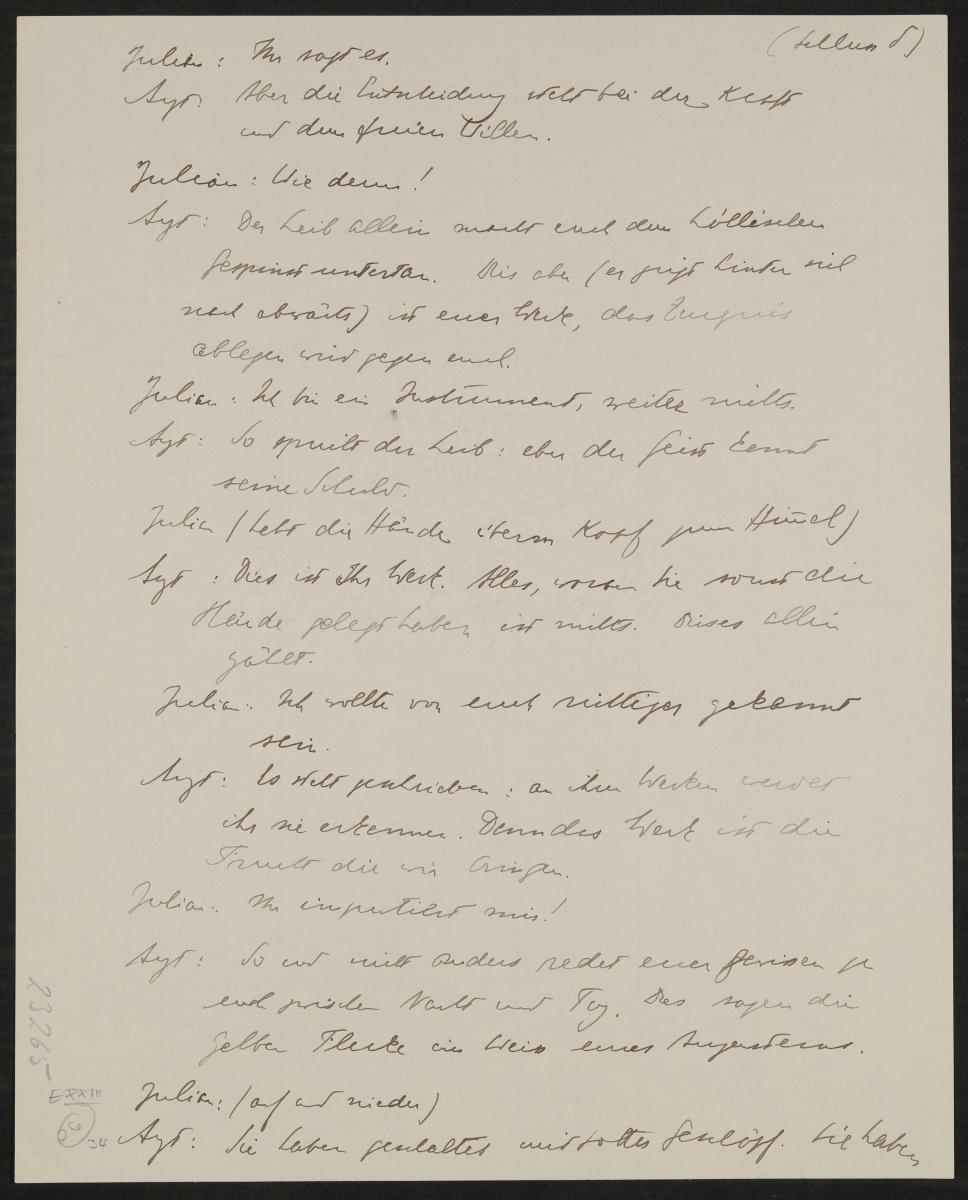 Julian: Ihr sagt es.
Arzt: Aber die Entscheidung steht bei der Kraft
und dem freien Willen.
Julian: Wie denn!
Arzt: Der Leib allein macht euch dem höllischen
Gespinst untertan. Dies aber (er zeigt hinter sich
nach abwärts) ist euer Werk, das Zeugnis
ablegen wird gegen euch.
Julian: Ich bin ein Instrument, weiter nichts.
Arzt: So spricht der Leib: aber der Geist kennt
seine Schuld.
Julian (hebt die Hände überm Kopf zum Him̄el)
Arzt: Dies ist Ihr Werk. Alles, woran Sie sonst die
Hände gelegt haben ist nichts. Dieses allein
zählt.
Julian: Ich wollte von euch richtiger gekannt
sein.
Arzt: Es steht geschrieben: an ihren Werken werdet
ihr sie erkennen. Denn das Werk ist die
Frucht die wir bringen.
Julian: Ihr imputiert mir!
Arzt: So und nicht anders redet euer Gewissen zu
euch zwischen Nacht und Tag. Das sagen die
gelben Flecke im Weiss eures Augensterns.
Julian: (auf und nieder)
Arzt: Sie haben geschaltet mit Gottes Geschöpf. Sie haben
23265
EXXIII
34